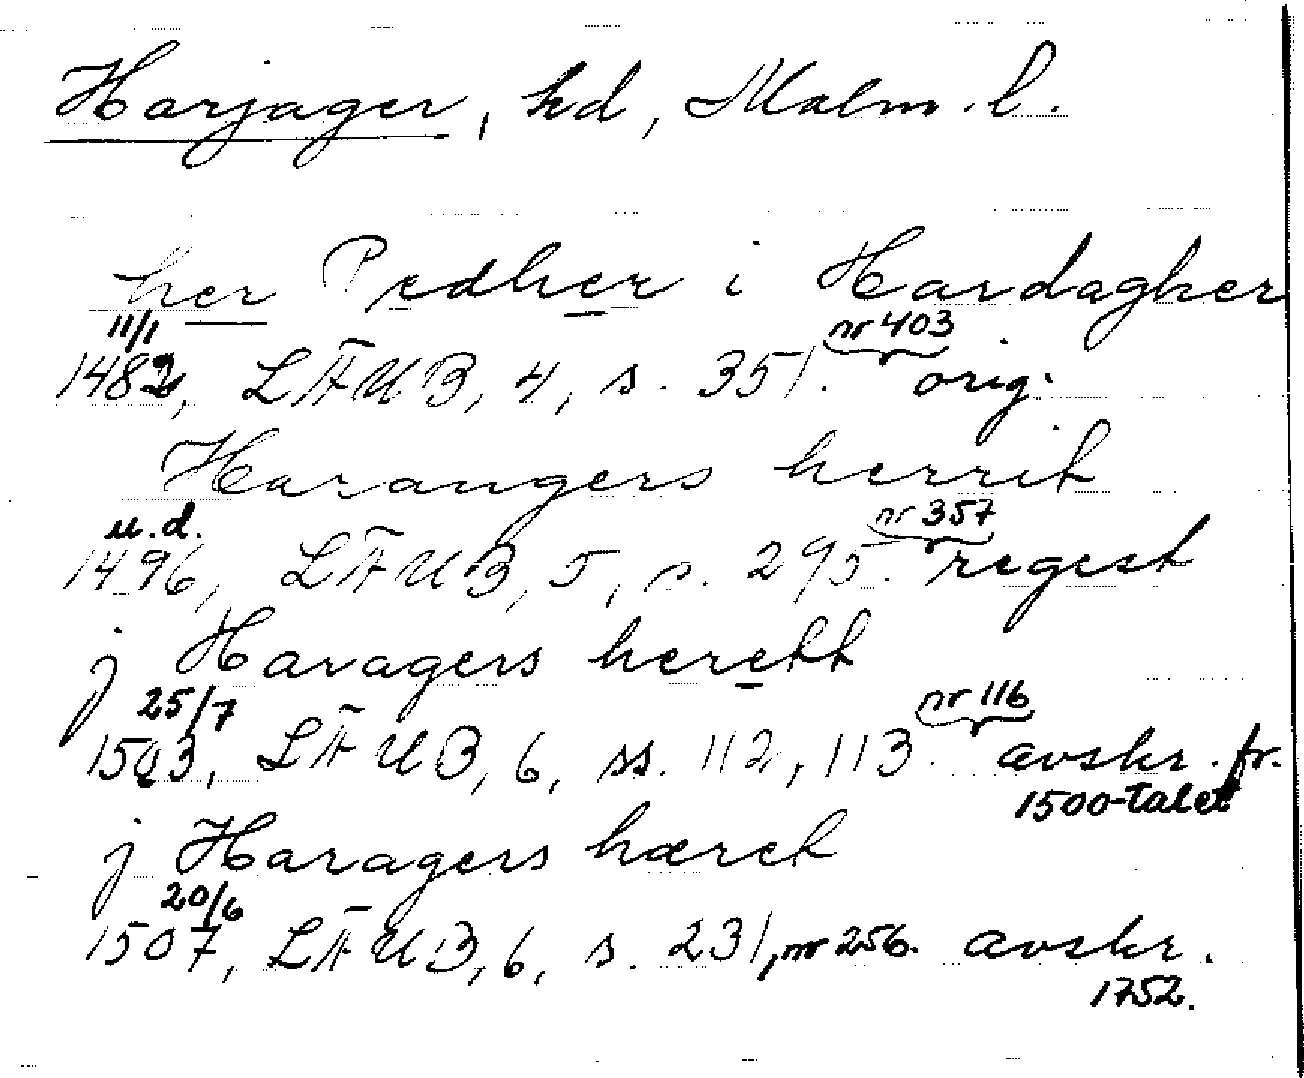 Harjager, hd, Malm. l.
her Pedher i Hardagher
11/1 nr 403
1482, LÄUB, 4, s. 351. orig.
Harangers herrit
u.d. nr 357
1496, LÄUB, 5, s. 295. regest
j Haragers herett
25/7 nr 116
1503, LÄUB, 6, ss. 112, 113. avskr. fr.
1500-talet
j Haragers hæret
20/6
1507, LÄUB, 6, s. 231, nr 256. avskr.
1752.